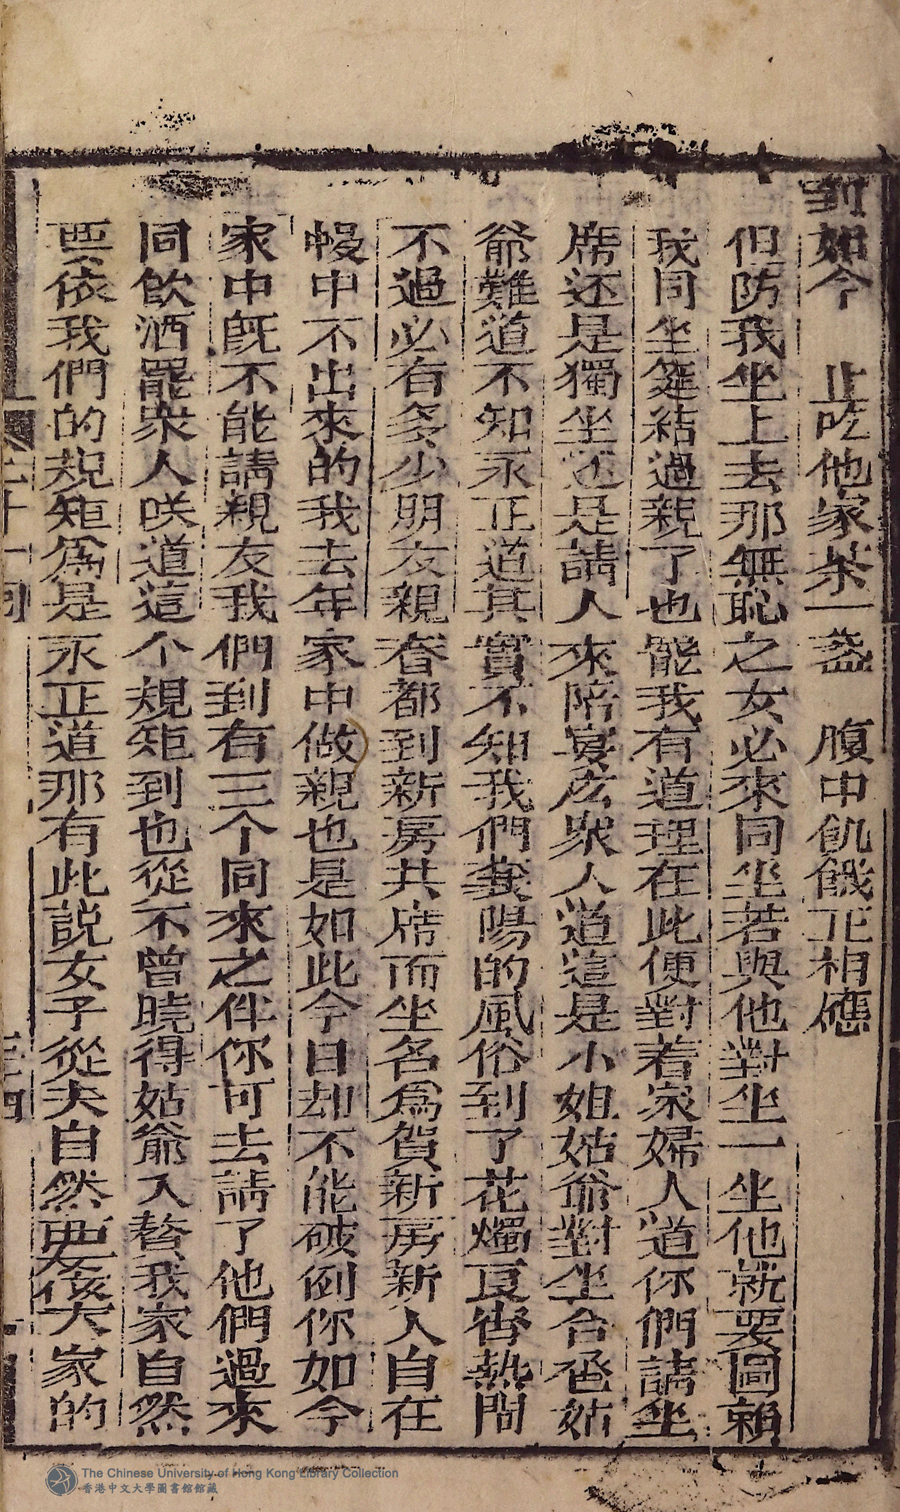 到如今　止吃他家茶一盞　腹中飢餓正相應
但防我坐上去那無恥之女必來同坐若與他對坐一坐他就要圖賴
我同坐筵結過親了也罷我有道理在此便對着家婦人道你們請坐
席还是獨坐还是請人來陪宴庅眾人道這是小姐姑爺對坐合卺姑
爺難道不知永正道其實不知我們襄陽的風俗到了花燭良宵熱鬧
不過必有多少朋友親眷都到新房共席而坐名爲賀新房新人自在
幔中不出來的我去年家中做親也是如此今日却不能破例你如今
家中旣不能請親友我們到有三个同來之伴你可去請了他們過來
同飲酒罷衆人咲道這个規矩到也從不曾曉得姑爺入贅我家自然
要依我們的規矩爲是永正道那有此説女子從夫自然要依夫家的
二十一回
三四
The Chinese University of Hong Kong Library Collection
香港中文大學圖書館館藏